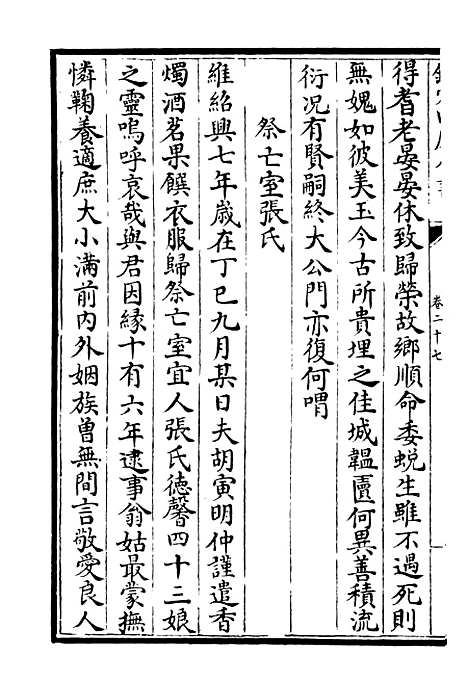 卷二十七
得耆老晏晏休致歸榮故鄉順命委蛻生雖不過死則
無媿如彼美玉今古所貴埋之佳城韞匵何異善積流
衍况有賢嗣終大公門亦復何喟
祭亡室張氏
維紹興七年歲在丁巳九月某日夫胡寅明仲謹遣香
燭酒茗果饌衣服歸祭亡室宜人張氏德馨四十三娘
之靈嗚呼哀哉與君因緣十有六年逮事翁姑最蒙撫
憐鞠養適庶大小滿前内外姻族曾無間言敬愛良人